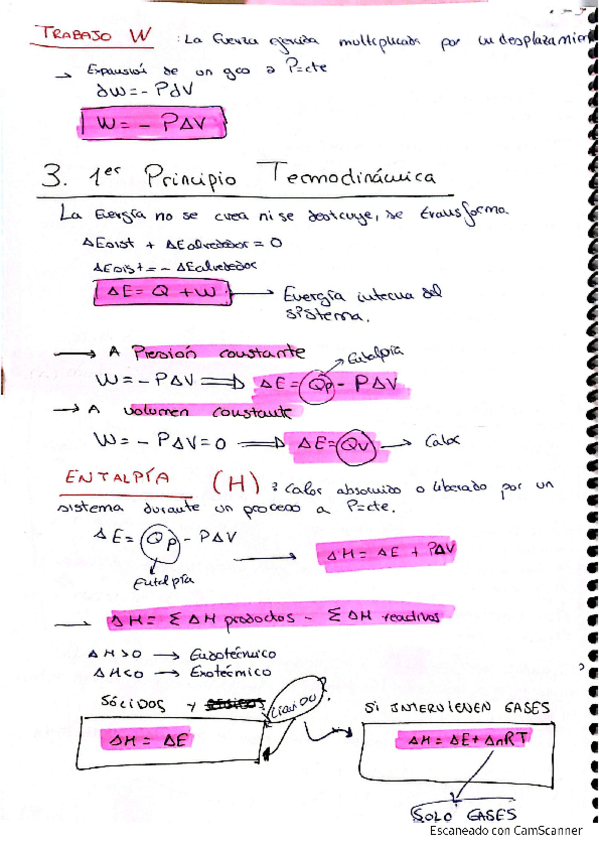 TRABAJO W : La fuerza ejercida multiplicada por un desplazamien
→ Expansión de un gas a P=cte
∂W = - P∂V
W = - PΔV
3. 1er Principio Termodinámica
La Energía no se crea ni se destruye, se transforma.
ΔEsist + ΔEalrededor = 0
ΔEsist = - ΔEalrededor
ΔE = Q + W → Energía interna del
sistema.
→ A Presión constante
Entalpía
W = - PΔV ⟹ ΔE = Qp - PΔV
→ A volumen constante
W = - PΔV = 0 ⟹ ΔE = Qv → Calor
ENTALPÍA (H) : Calor absorvido o liberado por un
sistema durante un proceso a P=cte.
ΔE = Qp - PΔV → ΔH = ΔE + PΔV
Entalpía
→ ΔH = Σ ΔH productos - Σ ΔH reactivos
ΔH>0 → Endotérmico
ΔH<0 → Exotérmico
SÓLIDOS y LÍQUIDO
SI INTERVIENEN GASES
ΔH = ΔE
ΔH = ΔE + ΔnRT
SOLO GASES
Escaneado con CamScanner